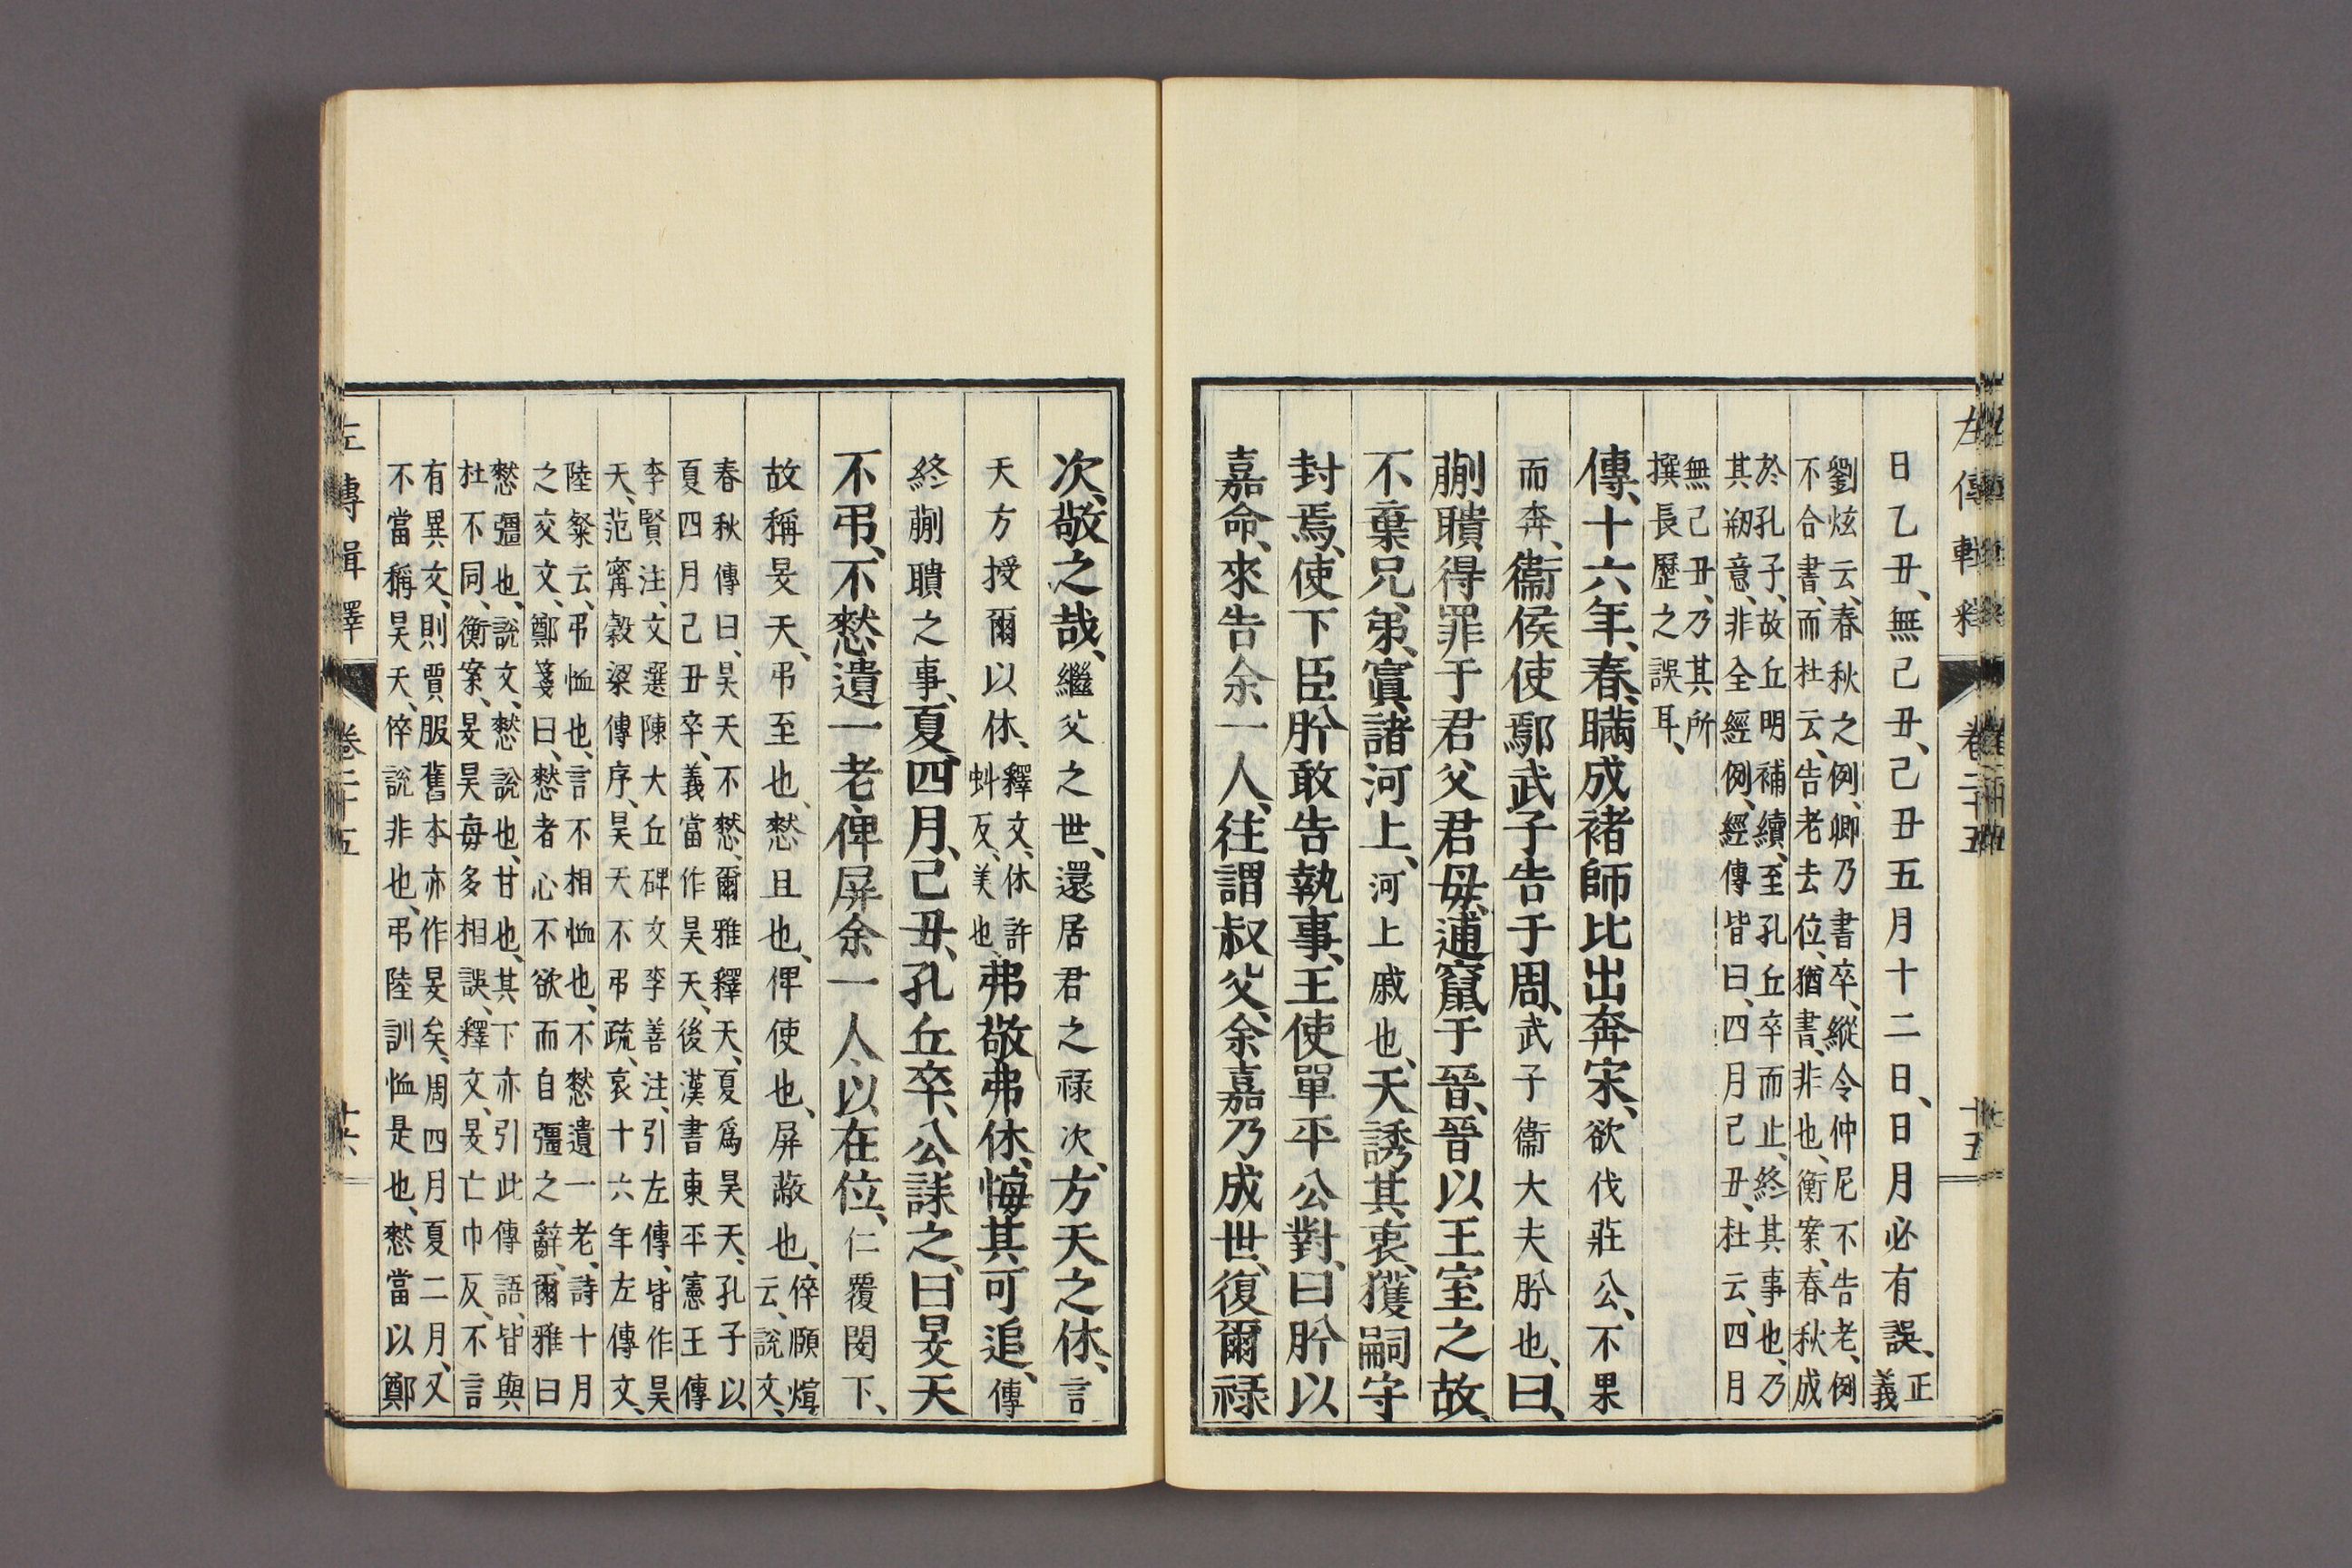 左傳輯釋 卷二十五 十五
日乙丑、無己丑、己丑五月十二日、日月必有誤、正義
劉炫云、春秋之例、卿乃書卒、縱令仲尼不告老、例
不合書、而杜云、告老去位、猶書、非也、衡案、春秋成
於孔子、故丘明補續、至孔丘卒而止、終其事也、乃
其剏意、非全經例、經傳皆曰、四月己丑、杜云、四月
無己丑、乃其所
撰長歷之誤耳、
傳、十六年、春、瞞成褚師比出奔宋、欲伐莊公、不果
而奔、衞侯使鄢武子告于周、武子衞大夫肸也、曰、
蒯聵得罪于君父君母、逋竄于晉、晉以王室之故、
不棄兄弟、寘諸河上、河上戚也、天誘其衷、獲嗣守
封焉、使下臣肸敢告執事、王使單平公對、曰肸以
嘉命、來告余一人、往謂叔父、余嘉乃成世、復爾祿
次、敬之哉、繼父之世、還居君之祿次、方天之休、言
天方授爾以休、釋文、休許虯反、美也、弗敬弗休、悔其可追、傳
終蒯聵之事、夏、四月、己丑、孔丘卒、公誄之、曰旻天
不弔、不憖遺一老、俾屏余一人、以在位、仁覆閔下、
故稱旻天、弔至也、憖且也、俾使也、屏蔽也、倅願煊云、說文、
春秋傳曰、昊天不憖、爾雅釋天、夏爲昊天、孔子以
夏四月己丑卒、義當作昊天、後漢書東平憲王傳
李賢注、文選陳大丘碑文李善注、引左傳、皆作昊
天、范甯穀梁傳序、昊天不弔疏、哀十六年左傳文、
陸粲云、弔恤也、言不相恤也、不憖遺一老、詩十月
之交文、鄭箋曰、憖者心不欲而自彊之辭、爾雅曰
憖彊也、說文、憖說也、甘也、其下亦引此傳語、皆與
杜不同、衡案、旻昊每多相誤、釋文、旻亡巾反、不言
有異文、則賈服舊本亦作旻矣、周四月夏二月、又
不當稱昊天、倅說非也、弔陸訓恤是也、憖當以鄭
左傳輯釋 卷二十五 十六